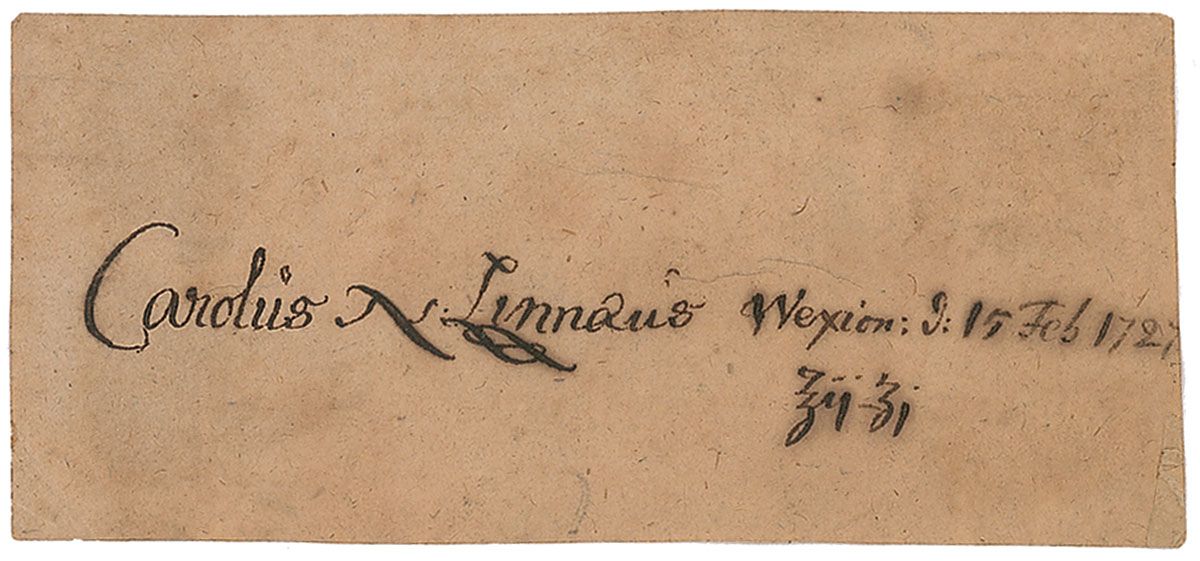 Carolus N. Linnæus Wexion: d: 15 Feb 1727
ʒij-ʒj